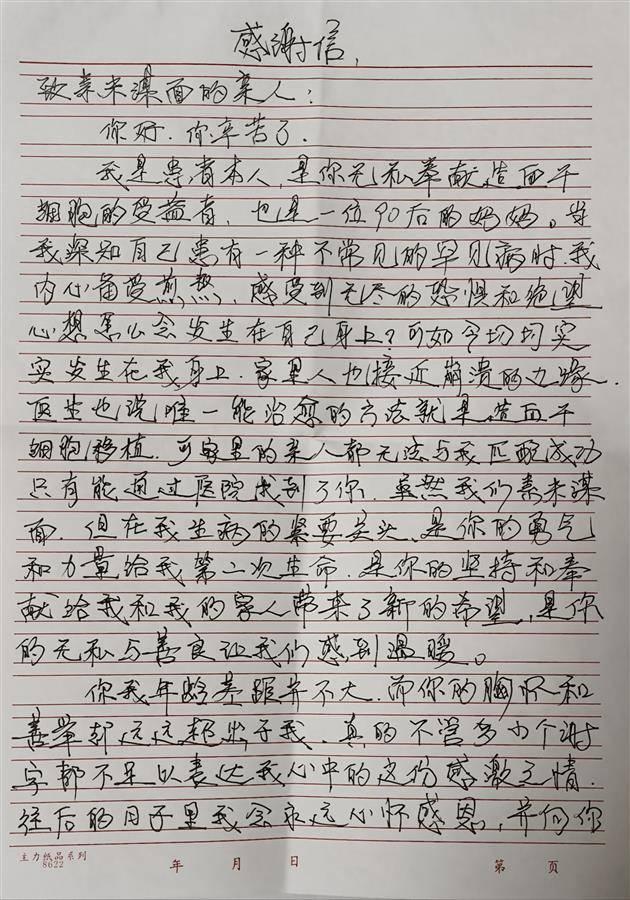 感谢信,
致素未谋面的亲人:
你好.你辛苦了.
我是患者本人,是你无私奉献造血干
细胞的受益者,也是一位90后的妈妈。当
我深知自己患有一种不常见的罕见病时我
内心备受煎熬,感受到无尽的恐惧和绝望
心想怎么会发生在自己身上?可如今切切实
实发生在我身上.家里人也接近崩溃的边缘.
医生也说唯一能治愈的方法就是造血干
细胞移植.可家里的亲人都无法与我匹配成功
只有能通过医院找到了你.虽然我们素未谋
面.但在我生病的紧要关头,是你的勇气
和力量给我第二次生命.是你的坚持和奉
献给我和我的家人带来了新的希望,是你
的无私与善良让我们感到温暖。
你我年龄差距并不大.而你的胸怀和
善举却远远超出于我.真的不管多少个谢
字都不足以表达我心中的这份感激之情.
往后的日子里我会永远心怀感恩,并向你
主力纸品系列
8622
年 月 日 第 页